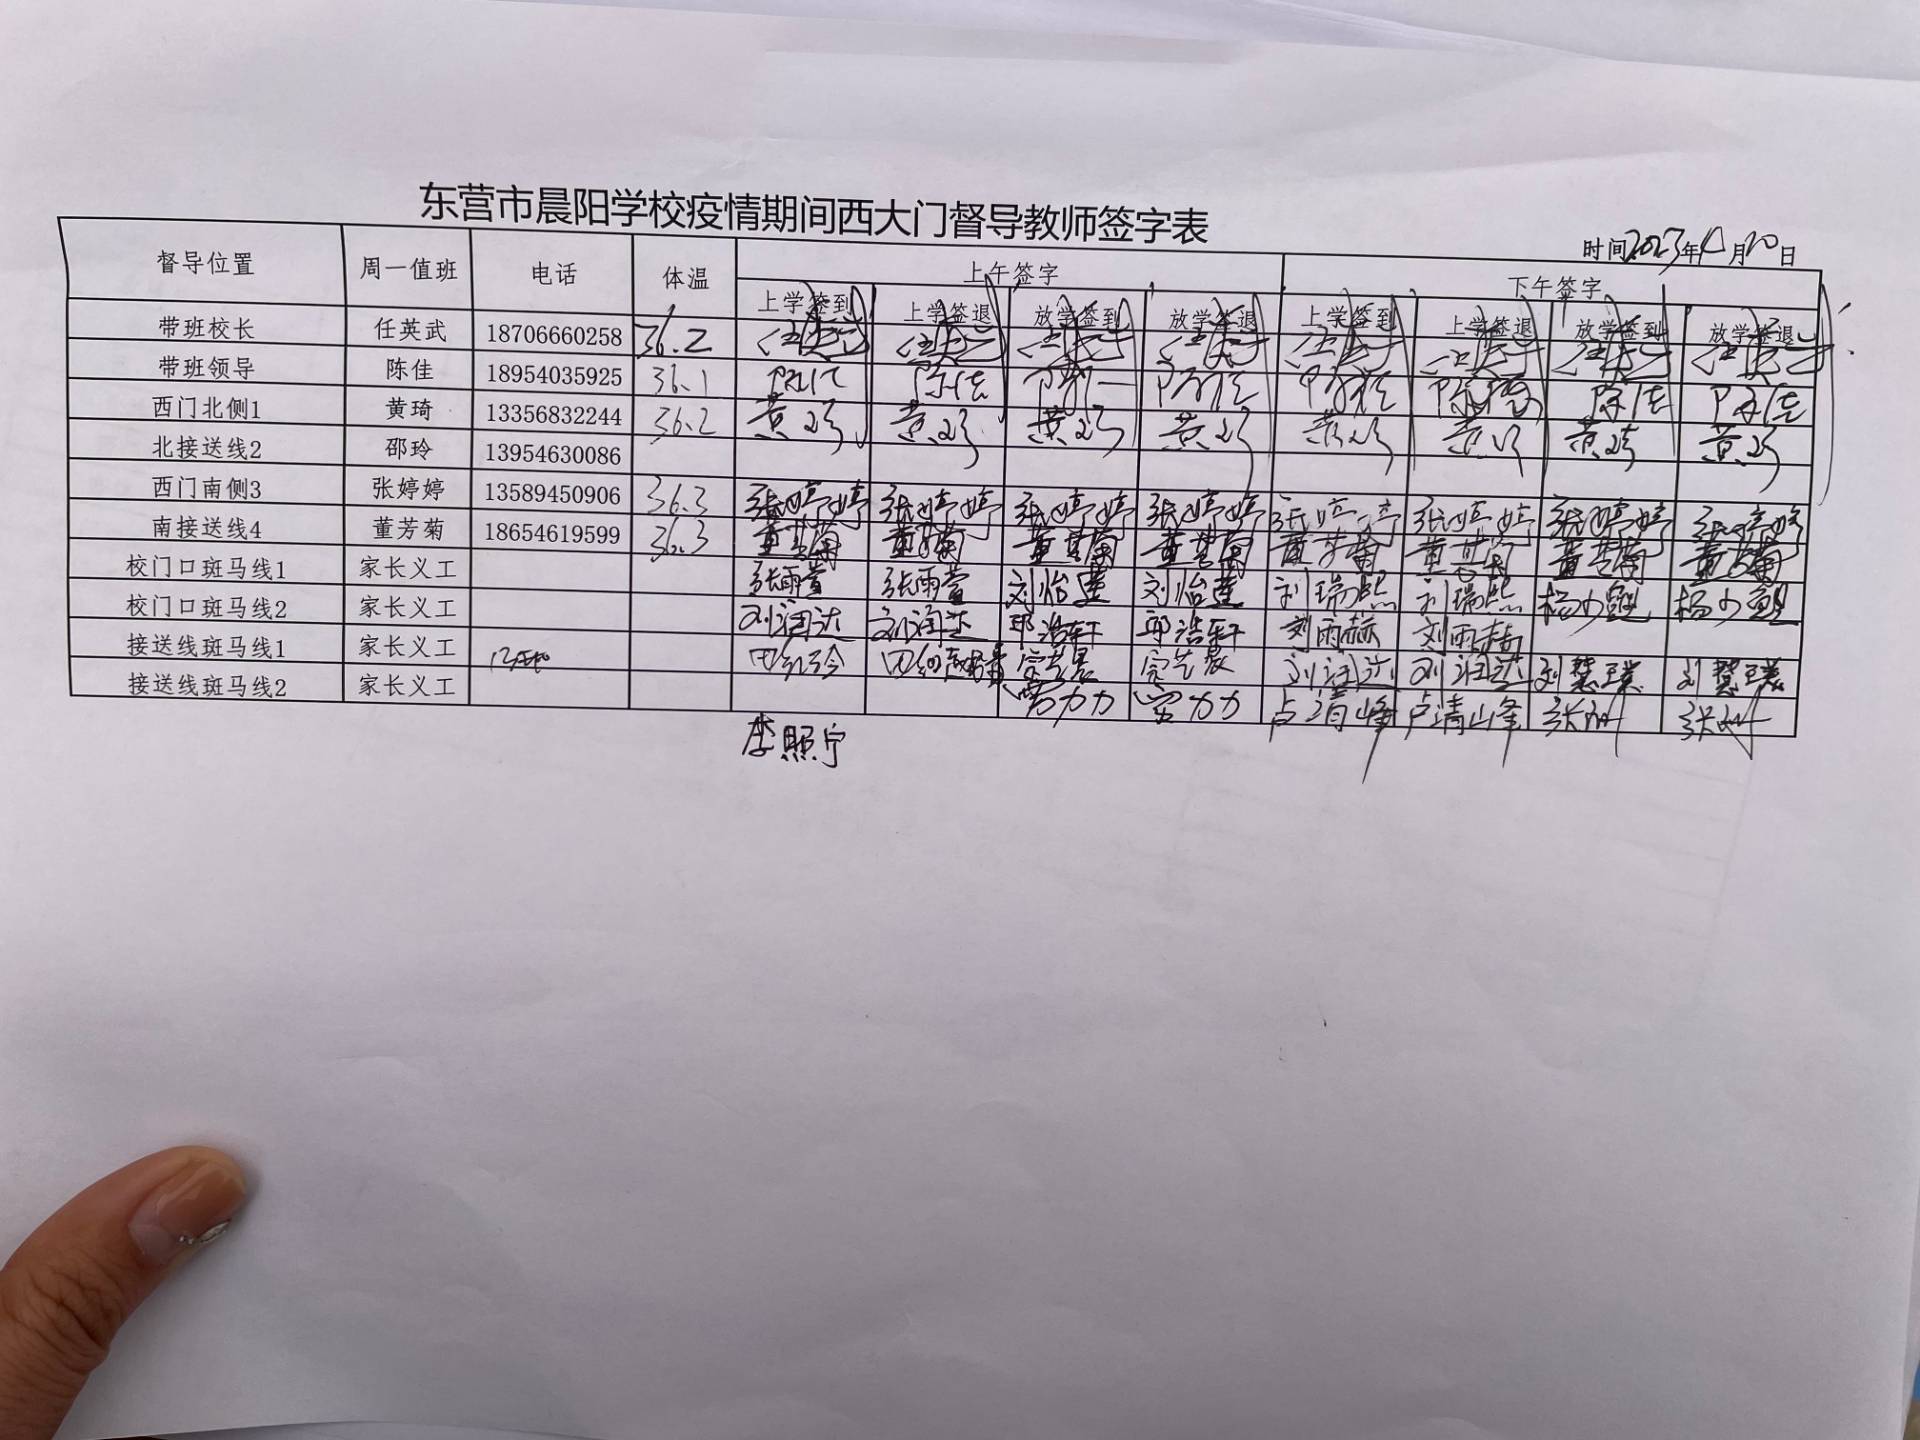 东营市晨阳学校疫情期间西大门督导教师签字表
时间2023年4月20日
督导位置 周一值班 电话 体温 上午签字 下午签字
上学签到 上学签退 放学签到 放学签退 上学签到 上学签退 放学签到 放学签退
带班校长 任英武 18706660258 36.2
带班领导 陈佳 18954035925 36.1 陈佳 陈佳 陈佳 陈佳 陈佳 陈佳 陈佳
西门北侧1 黄琦 13356832244 36.2 黄琦 黄琦 黄琦 黄琦 黄琦 黄琦 黄琦 黄琦
北接送线2 邵玲 13954630086
西门南侧3 张婷婷 13589450906 36.3 张婷婷 张婷婷 张婷婷 张婷婷 张婷婷 张婷婷 张婷婷 张婷婷
南接送线4 董芳菊 18654619599 36.3 董芳菊 董芳菊 董芳菊 董芳菊 董芳菊 董芳菊 董芳菊 董芳菊
校门口斑马线1 家长义工 张雨萱 张雨萱 刘怡莲 刘怡莲 刘瑞熙 刘瑞熙
校门口斑马线2 家长义工 刘润达 刘润达 邱浩轩 邱浩轩 刘雨赫 刘雨赫
接送线斑马线1 家长义工 刘润达 刘润达 刘慧瑛 刘慧瑛
接送线斑马线2 家长义工 贾力力 贾力力 卢清峰 卢清峰
李照宁